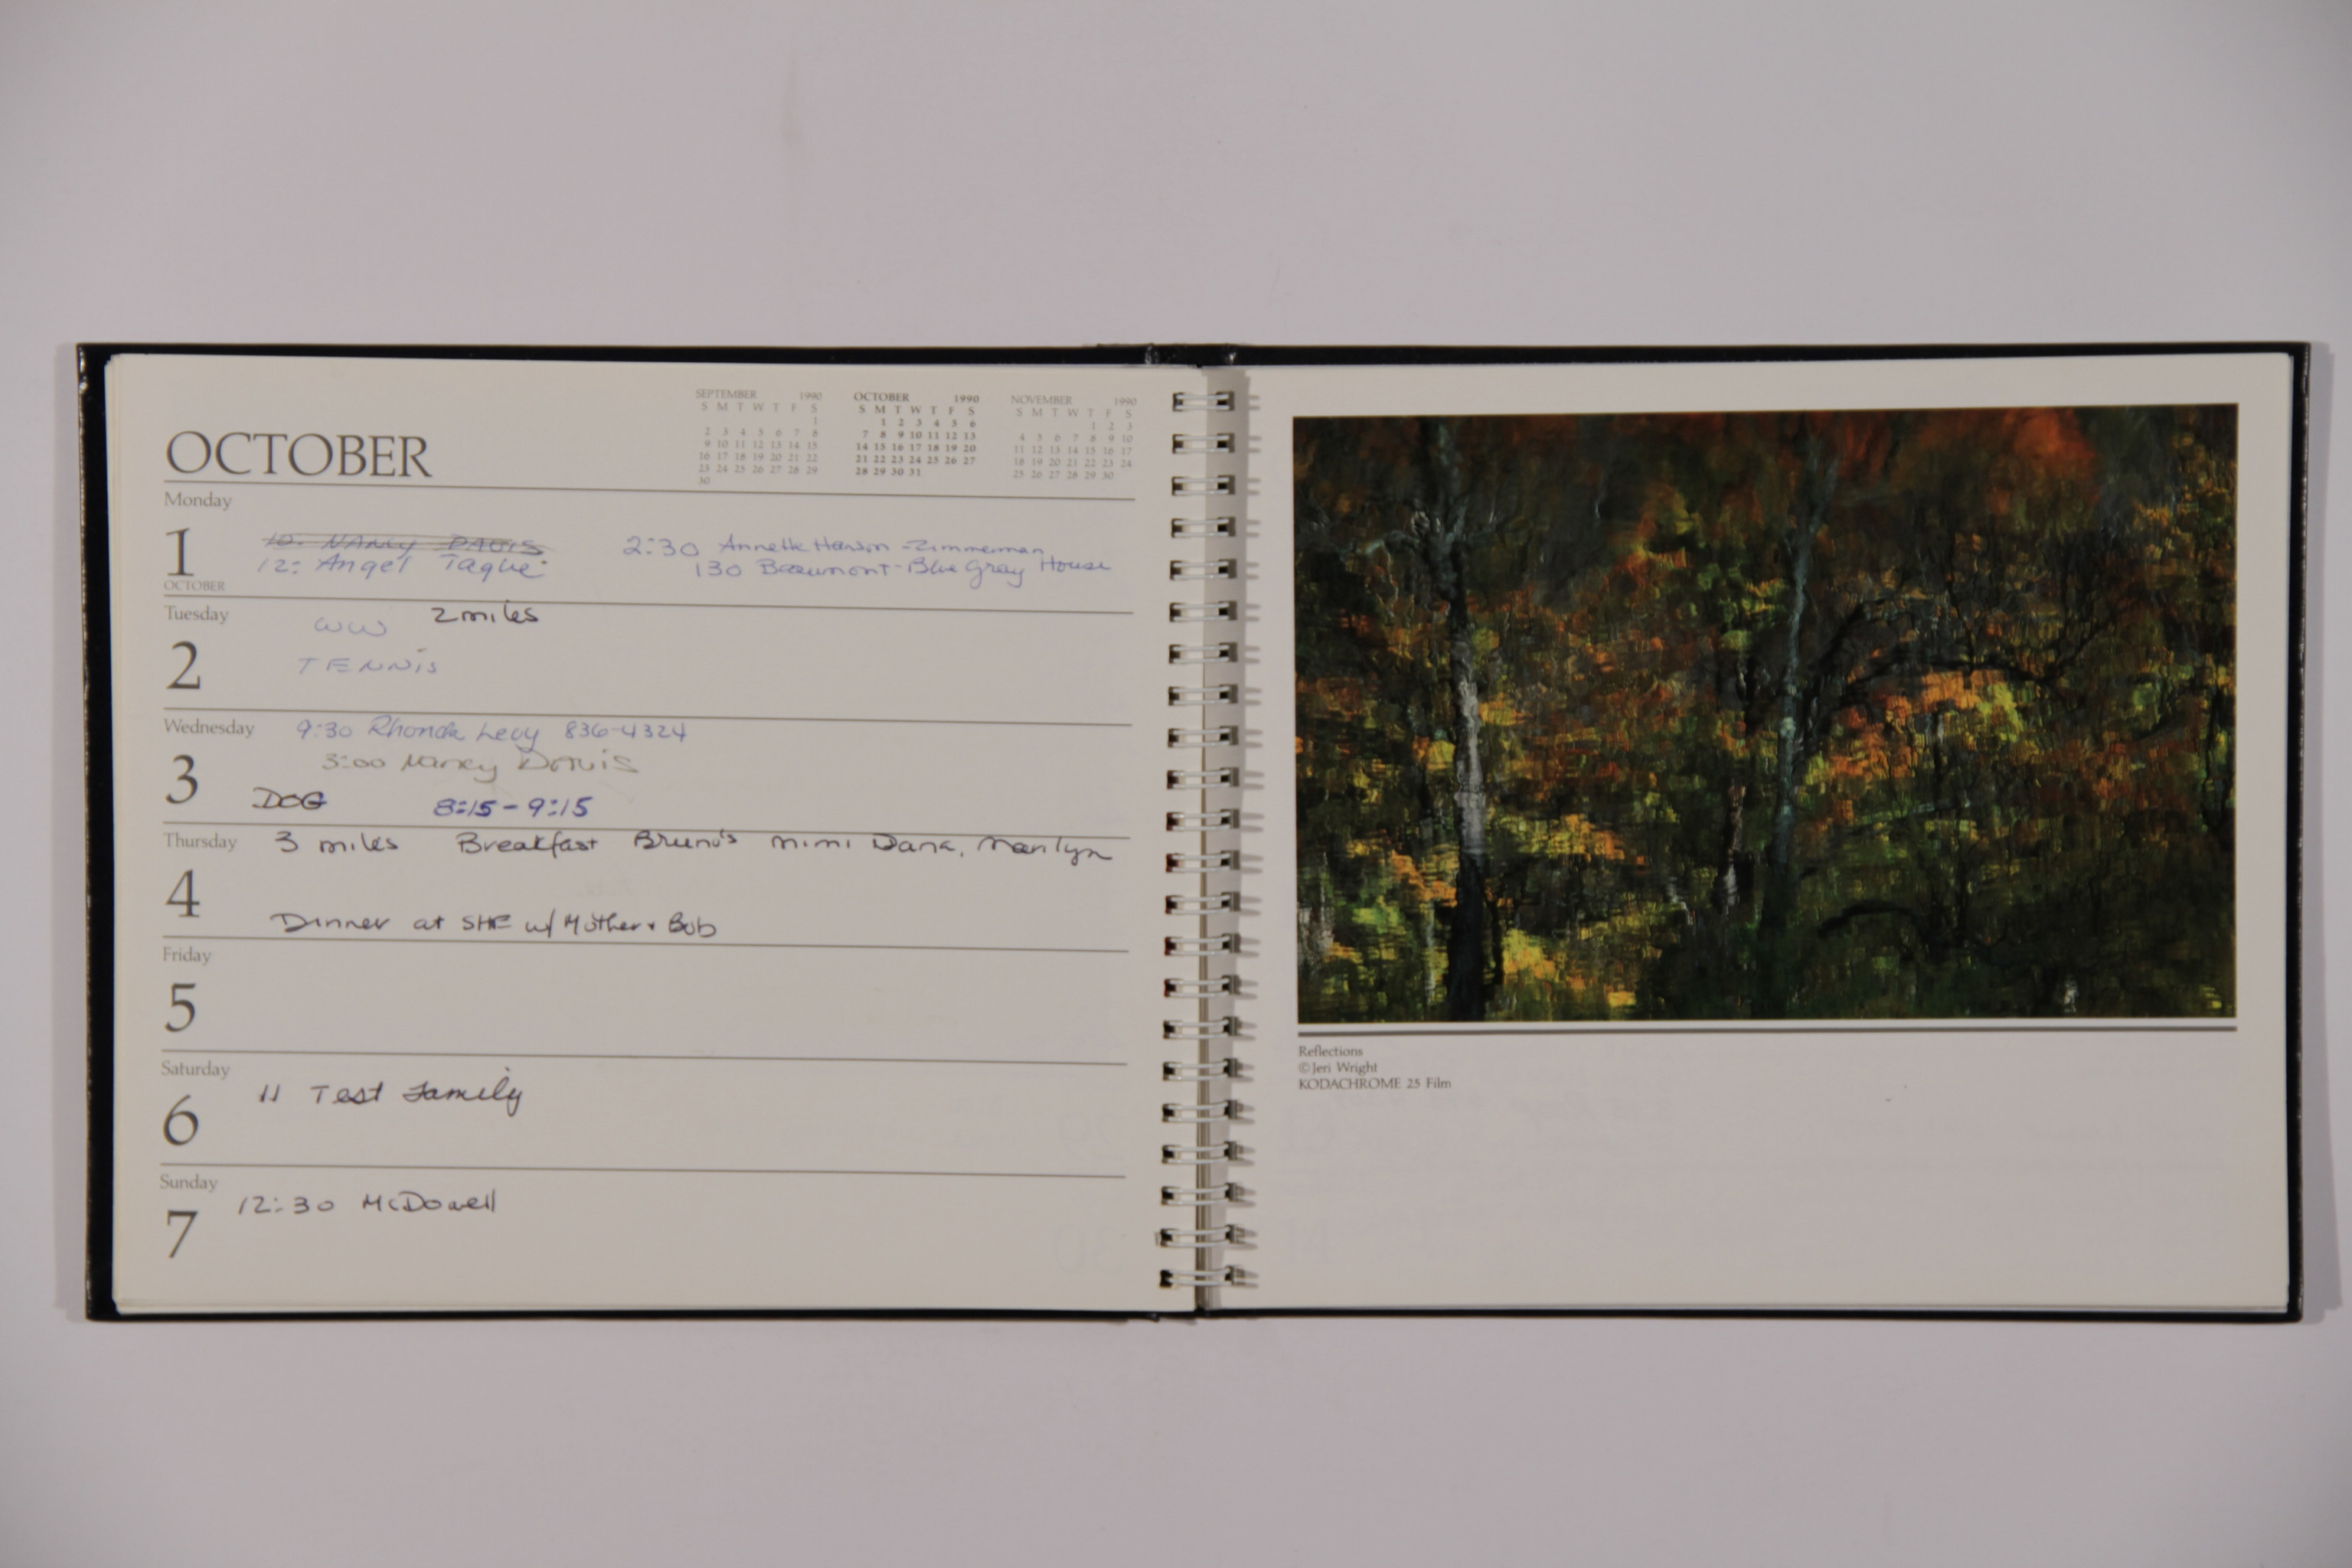 OCTOBER
SEPTEMBER 1990
S M T W T F S
1
2 3 4 5 6 7 8
9 10 11 12 13 14 15
16 17 18 19 20 21 22
23 24 25 26 27 28 29
30
OCTOBER 1990
S M T W T F S
1 2 3 4 5 6
7 8 9 10 11 12 13
14 15 16 17 18 19 20
21 22 23 24 25 26 27
28 29 30 31
NOVEMBER 1990
S M T W T F S
1 2 3
4 5 6 7 8 9 10
11 12 13 14 15 16 17
18 19 20 21 22 23 24
25 26 27 28 29 30
Monday
1
OCTOBER
10: NANCY DAVIS
12: Angel Tague
2:30 Annette Hanson-Zimmerman
130 Beaumont-Blue Gray House
Tuesday
2
WW 2 miles
TENNIS
Wednesday
3
9:30 Rhonda Levy 836-4324
3:00 Nancy Davis
DOG 8:15-9:15
Thursday
4
3 miles Breakfast Bruno's mimi Dana, Marilyn
Dinner at SHE w/ Mother + Bob
Friday
5
Saturday
6
11 Test Family
Sunday
7
12:30 McDowell
Reflections
©Jeri Wright
KODACHROME 25 Film